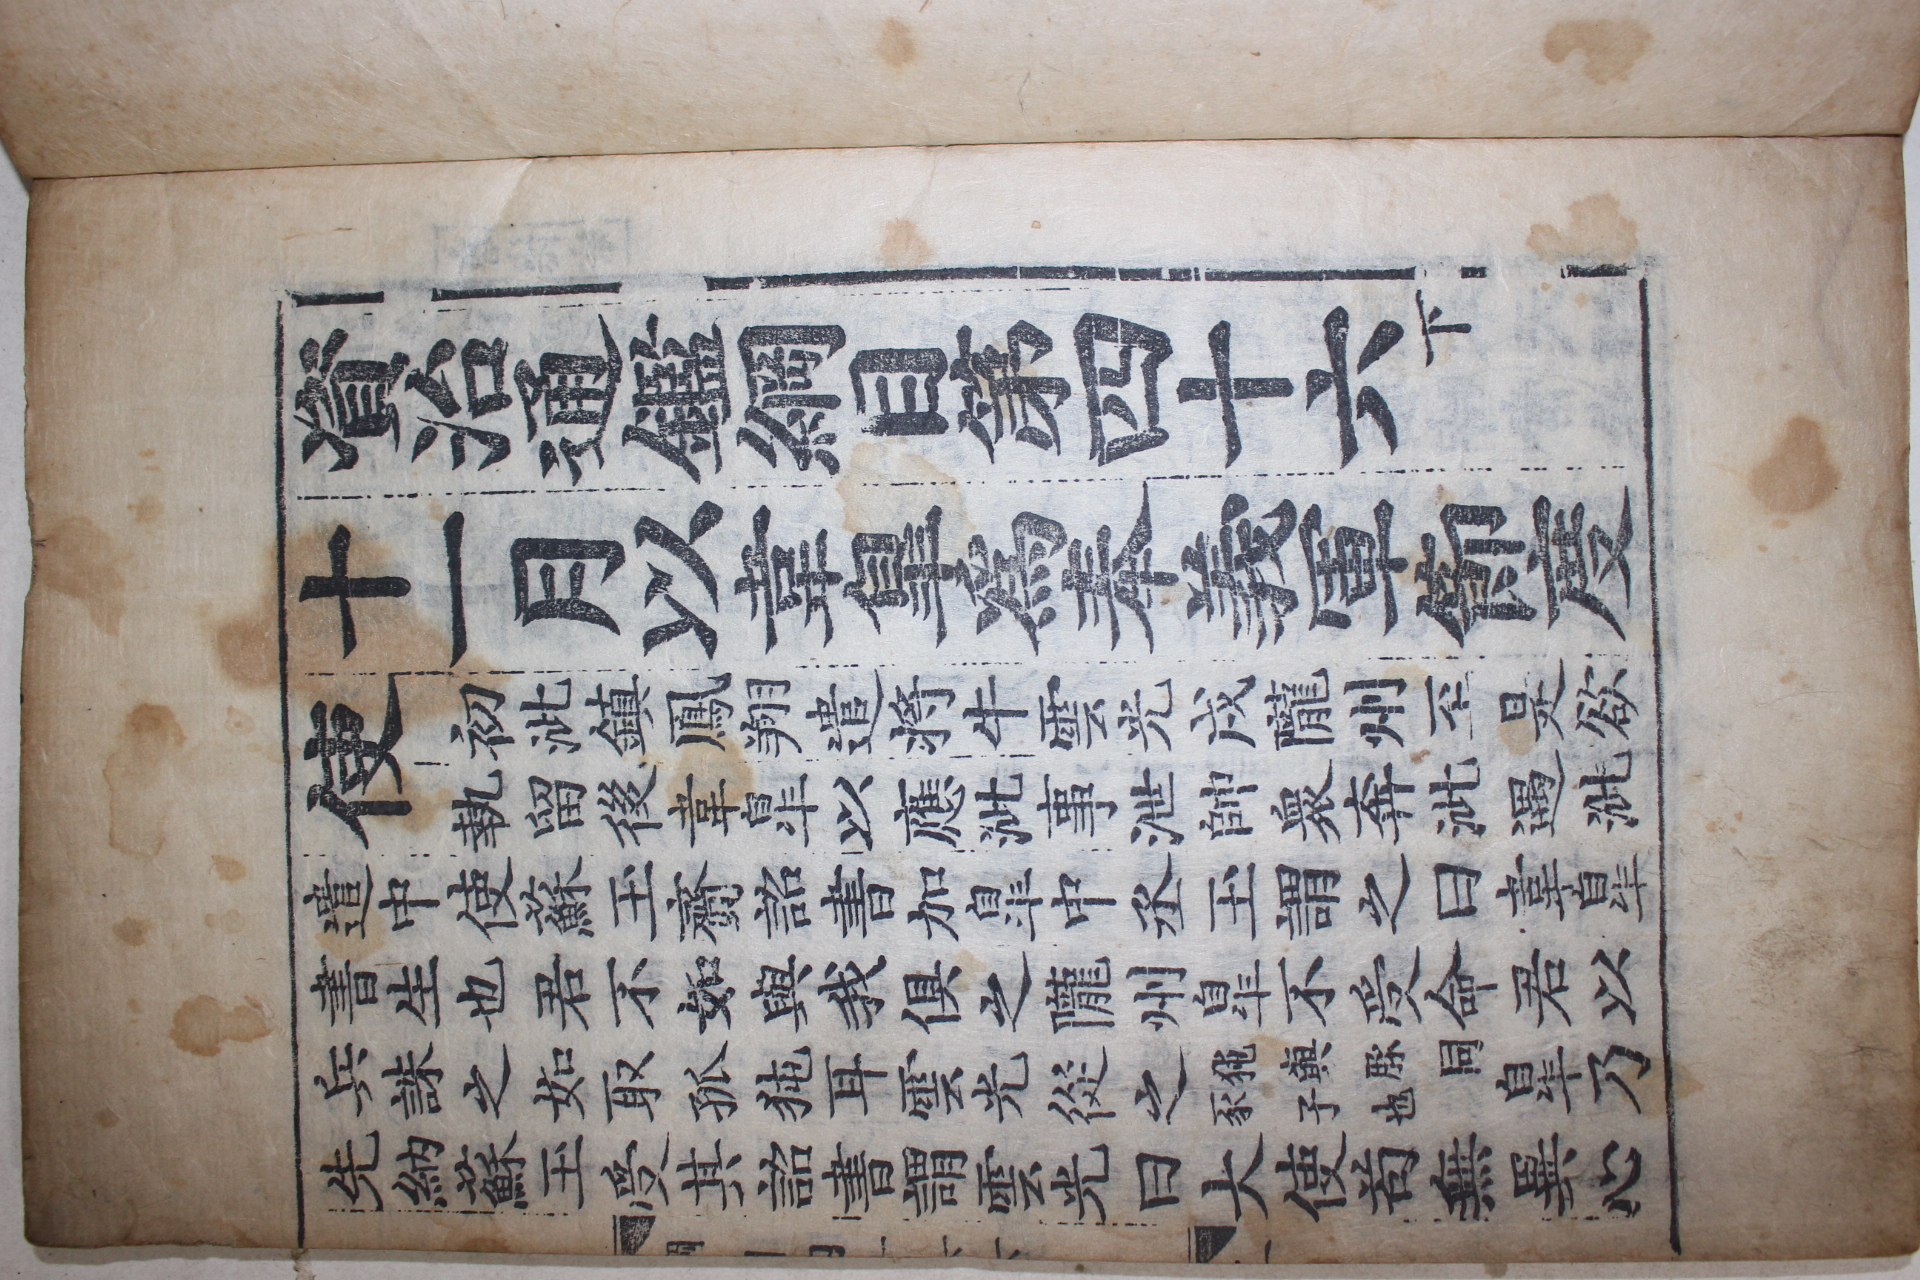 資治通鑑綱目第四十六下
十一月以韋皐為奉義軍節度
使
初泚鎮鳳翔遣將牛雲光戍隴州至是欲
執留後韋皐以應泚事泄帥衆奔泚遇泚
遣中使蘇玉齎詔書加皐中丞玉謂之曰韋皐
書生也君不如與我俱之隴州皐不受命君以
兵誅之如取孤㹠耳雲光從之㹠與豚同豕子也皐乃
先納蘇玉受其詔書謂雲光曰大使苟無異心